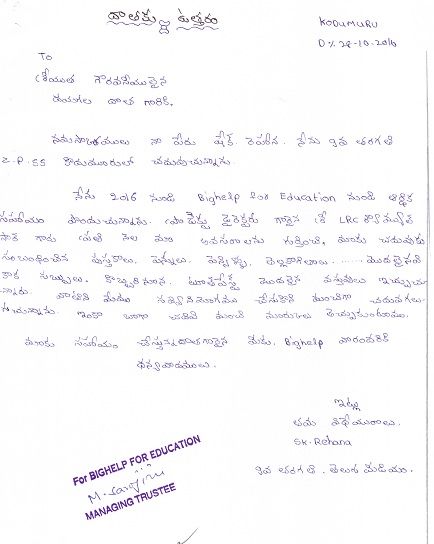 దాతకు ఉత్తరం
KODUMURU
D/. 28-10-2016
To
శ్రీయుత గౌరవనీయులైన
దయగల దాత గారికి.
నమస్కారములు నా పేరు షేక్. రెహాన. నేను 9వ తరగతి
Z.P.SS కొడుమూరులో చదువుచున్నాను.
నేను 2016 నుండి Bighelp for Education నుండి ఆర్థిక
సహాయం పొందుచున్నాను. ప్రాజెక్టు డైరెక్టరు గారైన శ్రీ LRC
గారు ప్రతి నెల మా అవసరాలను గుర్తించి, మాకు చదువుకు
సంబంధించిన పుస్తకాలు, పెన్నులు, పెన్సిళ్ళు, తెల్లకాగితాలు ....... మొదలైనవి
కాక సబ్బులు, కొబ్బరినూనె, టూత్‌పేస్ట్ మొదలైన వస్తువులు ఇచ్చుచు
న్నారు. వాటిని మేము సద్వినియోగము చేసుకొని మంచిగా చదువగలు
గుచున్నాను. ఇంకా బాగా చదివి మంచి మార్కులు తెచ్చుకుంటాము.
మాకు సహాయం చేస్తున్న దాతగారైన మీకు, Bighelp వారందరికి
ధన్యవాదములు.
ఇట్లు
తమ విధేయురాలు.
SK. Rehana
9వ తరగతి. తెలుగు మీడియం.
For BIGHELP FOR EDUCATION
MANAGING TRUSTEE